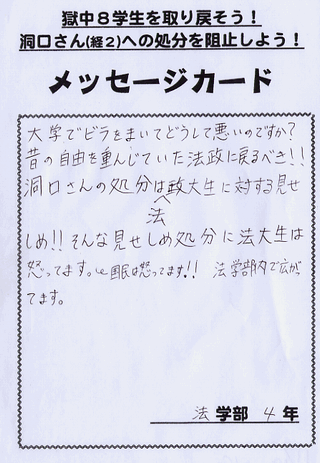 獄中８学生を取り戻そう！
洞口さん(経２)への処分を阻止しよう！
メッセージカード
大学でビラをまいてどうして悪いのですか?
昔の自由を重んじていた法政に戻るべき!!
洞口さんの処分は法政大生に対する見せ
しめ!! そんな見せしめ処分に法大生は
怒ってます。国民は怒ってます!! 法学部内で広がっ
てます。
法 学部 4 年